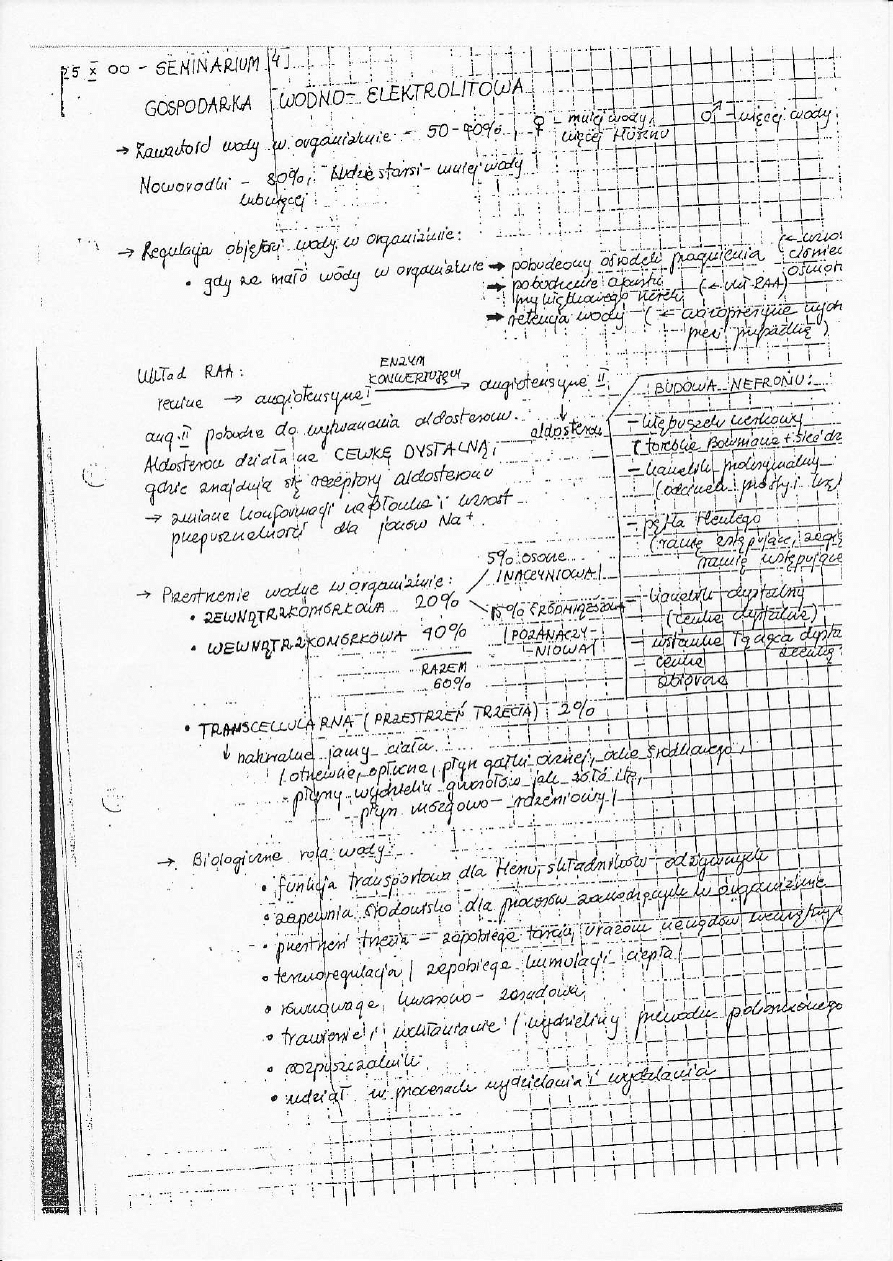 25 X 00 - SEMINARIUM 4
GOSPODARKA WODNO-ELEKTROLITOWA
→ Zawartość wody w organizmie - 50-70%, ♀ - mniej wody, więcej tłuszczu ♂ - więcej wody
Noworodki - 80%, ludzie starsi - mniej wody
lub więcej
→ Regulacja objętości wody w organizmie:
• gdy za mało wody w organizmie → pobudzony ośrodek pragnienia (←
→ pobudzenie aparatu
przykłębkowego nerek (← ukł. RAA)
→ retencja wody (← wazopresyna
przez przysadkę)
Układ RAA:
ENZYM
KONWERTUJĄCY
renina → angiotensyna I → angiotensyna II
↓
aldosteron
ang. II pobudza do wytwarzania aldosteronu.
Aldosteron działa na CEWKĘ DYSTALNĄ,
gdzie znajdują się receptory aldosteronu
→ zmiana konformacji na błonkach i wzrost
przepuszczalności dla jonów Na+.
BUDOWA NEFRONU:
- kłębuszek nerkowy
(torebka Bowmana + sieć
- kanalik proksymalny
(odcinek prosty i
- pętla Henlego
(ramię zstępujące,
ramię wstępujące
- kanalik dystalny
(cewka dystalna)
- wstawka łącząca
- cewka
zbiorcza
→ Przestrzenie wodne w organizmie:
• ZEWNĄTRZKOMÓRKOWA 20%
5% osocze
(NACZYNIOWA)
15% ŚRÓDMIĄŻSZOWA
(POZANACZY-
NIOWA)
• WEWNĄTRZKOMÓRKOWA 40%
RAZEM
60%
• TRANSCELLULARNA (PRZESTRZEŃ TRZECIA) 2%
↓ naturalne jamy ciała
(otrzewna, opłucna, płyn gałki ocznej, ucha środkowego,
płyny wydzielin gruczołów jak żółć itp,
płyn mózgowo-rdzeniowy)
→ Biologiczna rola wody:
• funkcja transportowa dla tlenu, składników odżywczych
• zapewnia środowisko dla procesów zachodzących w organizmie
• przestrzeń trzecia - zapobiega tarciu, urazom narządów
• termoregulacja (zapobiega kumulacji ciepła)
• równowaga kwasowo-zasadowa
• trawienie i wchłanianie (wydzieliny przewodu pokarmowego
• rozpuszczalnik
• udział w procesach wydzielania i wydalania